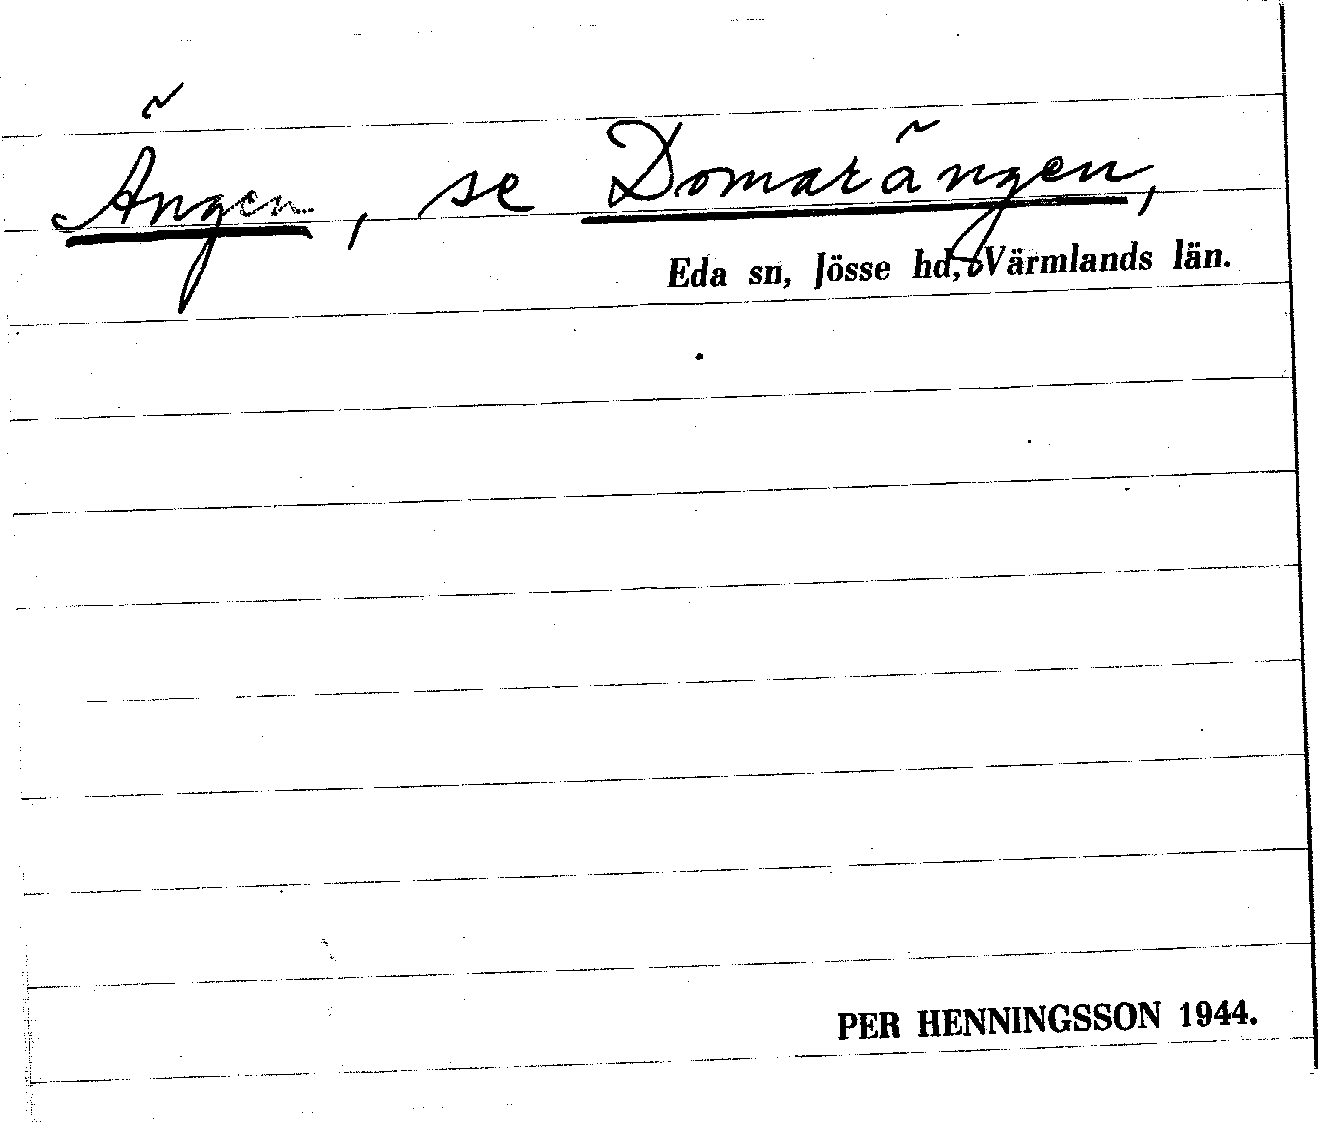 Ängen, se Domarängen,
Eda sn, Jösse hd, Värmlands län.
PER HENNINGSSON 1944.